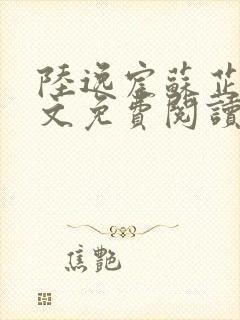 陸逸宸蘇芷
文免費閱讀
焦艷